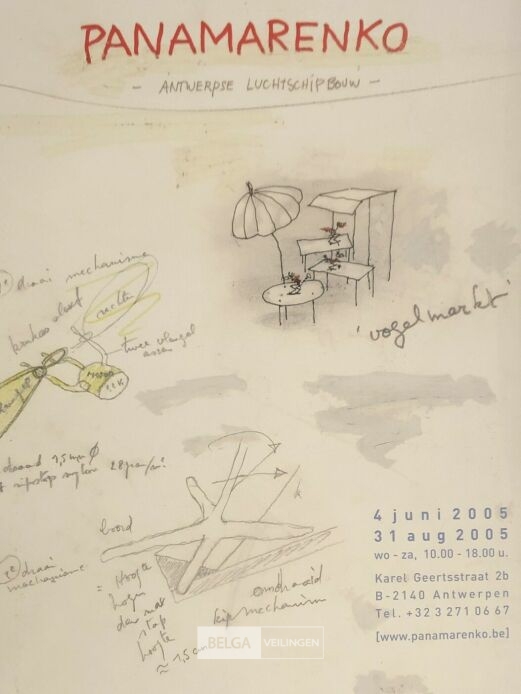 PANAMARENKO
- ANTWERPSE LUCHTSCHIPBOUW -
'vogelmarkt'
draai mechanisme
rechts
twee vleugel
assen
MOTOR
draad 1,5 mm Ø
ripstop nylon
4 juni 2005
31 aug 2005
wo - za, 10.00 - 18.00 u.
Karel Geertsstraat 2b
B-2140 Antwerpen
Tel. +32 3 271 06 67
[www.panamarenko.be]
boord
2e draai
mechanisme
= Hoogte
hoogte
≈ 1,5 cm
omdraaid
kip mechanism
BELGA VEILINGEN